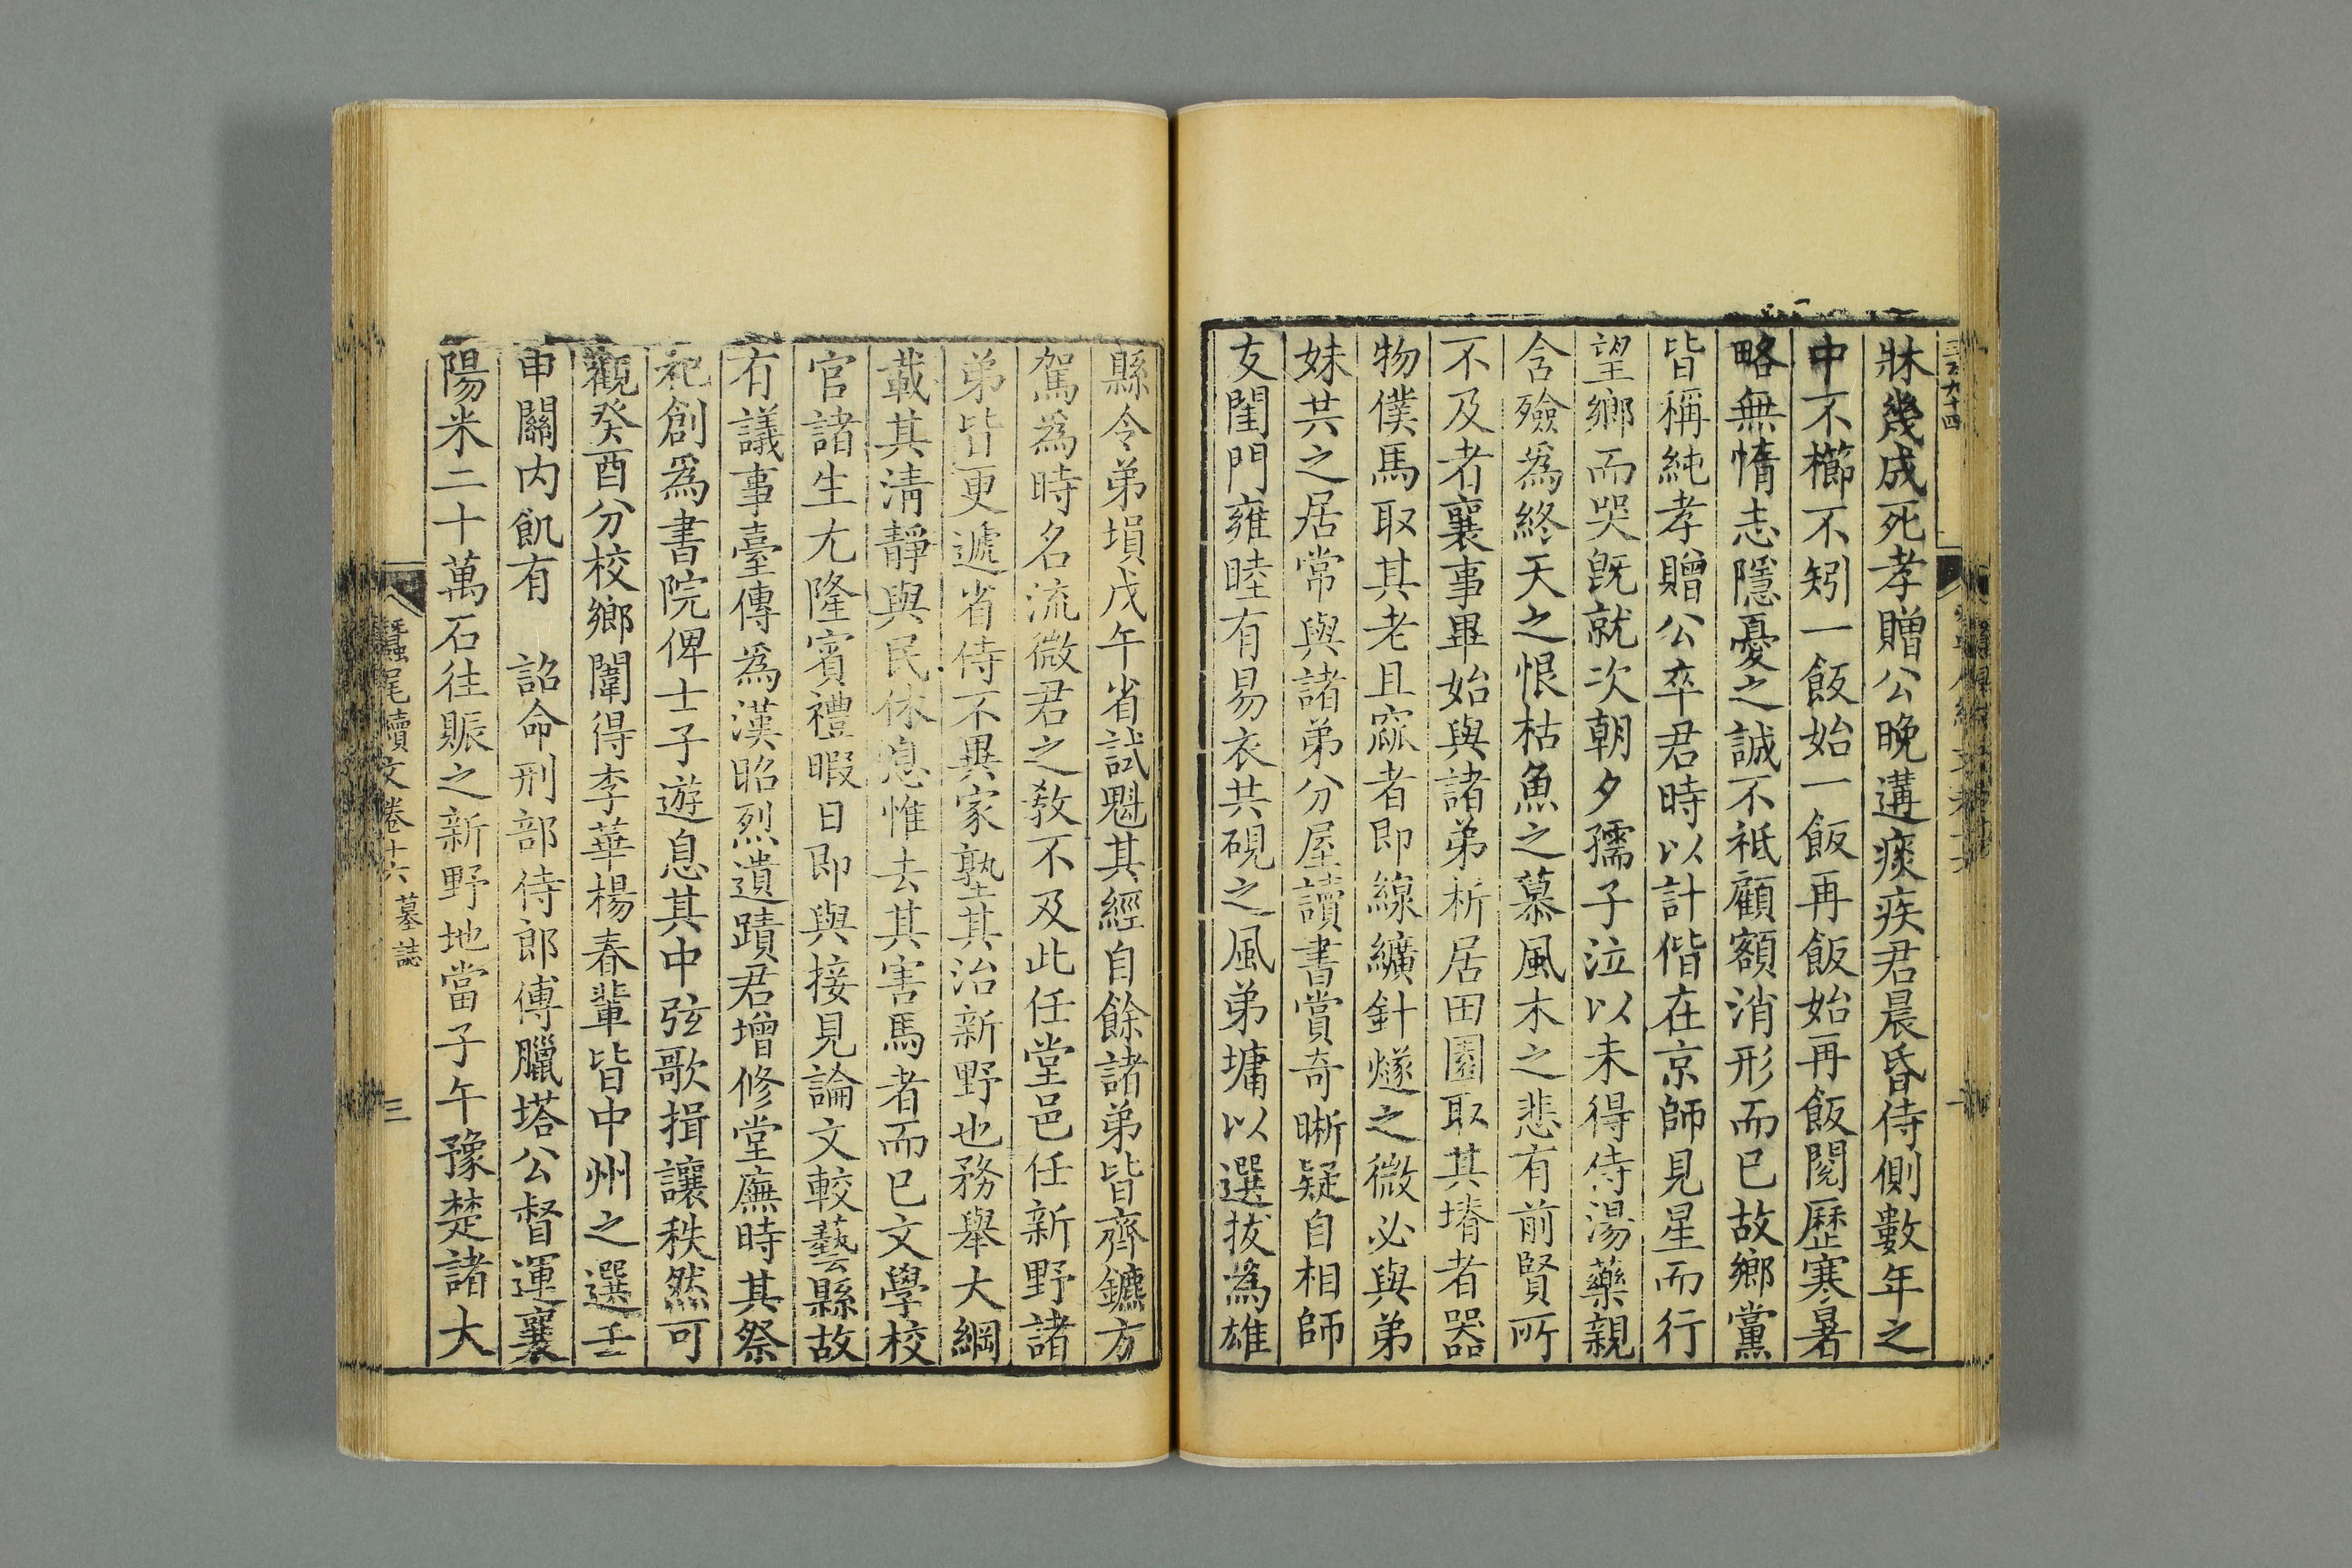 牀幾成死孝贈公晚遘痰疾君晨昏侍側數年之
中不櫛不矧一飯始一飯再飯始再飯閱歷寒暑
略無惰志隱憂之誠不祗顧額消形而已故鄉黨
皆稱純孝贈公卒君時以計偕在京師見星而行
望鄉而哭既就次朝夕孺子泣以未得侍湯藥親
含殮爲終天之恨枯魚之慕風木之悲有前賢所
不及者襄事畢始與諸弟析居田園取其塉者器
物僕馬取其老且窳者即線纊針燧之微必與弟
妹共之居常與諸弟分屋讀書賞奇晰疑自相師
友閨門雍睦有易衣共硯之風弟墉以選拔爲雄
縣令弟塤戊午省試魁其經自餘諸弟皆齊鑣方
駕爲時名流微君之敎不及此任堂邑任新野諸
弟皆更遞省侍不異家塾其治新野也務舉大綱
載其淸靜與民休息惟去其害馬者而已文學校
官諸生尤隆賓禮暇日即與接見論文較藝縣故
有議事臺傳爲漢昭烈遺蹟君增修堂廡時其祭
祀創爲書院俾士子遊息其中弦歌揖讓秩然可
觀癸酉分校鄉闈得李華楊春輩皆中州之選壬
申關內飢有 詔命刑部侍郎傅臘塔公督運襄
陽米二十萬石往賑之新野地當子午豫楚諸大
蠶尾續文卷十六 墓誌
三